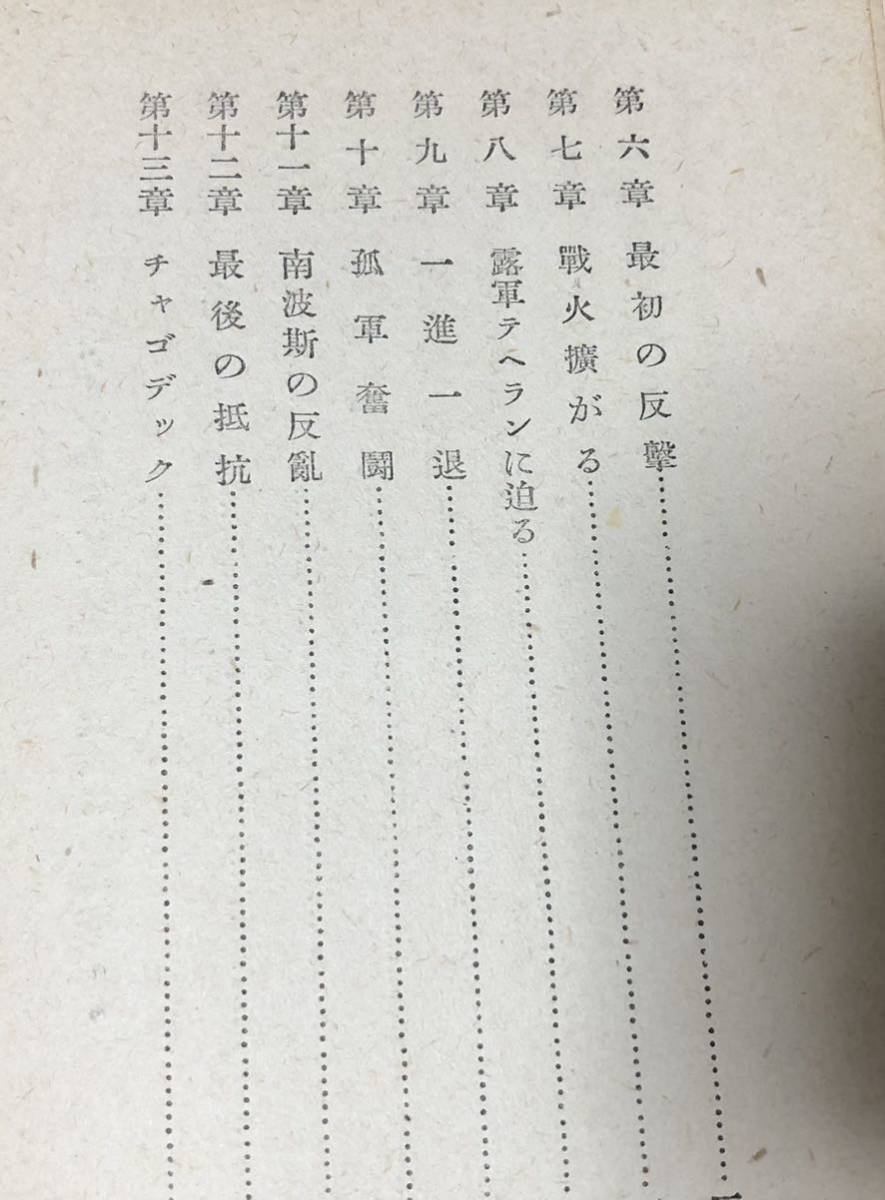 第六章 最初の反擊
第七章 戰火擴がる
第八章 露軍テヘランに迫る
第九章 一進一退
第十章 孤軍奮鬪
第十一章 南波斯の反亂
第十二章 最後の抵抗
第十三章 チャゴデック